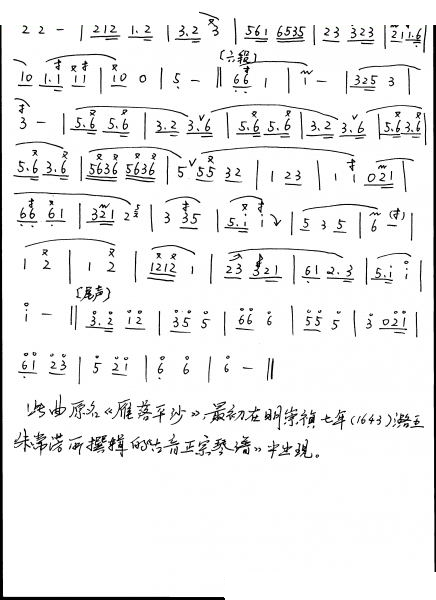 2 2 - | 212 1.2 | 3.2 3 | 561 6535 | 23 323 | 211.6 |
[六段]
10 1.1 11 | 10 0 | 5 - ‖ 66 1 | 1 - | 325 3 |
3 - | 5.6 5.6 | 3.2 3.6 | 5.6 5.6 | 3.2 3.6 | 5.6 3.6 |
5.6 3.6 | 5636 5636 | 5 55 32 | 1 23 | 1 1 021 |
66 61 | 321 2 | 3 35 | 5.i i | 5 3 5 | 6 - |
1 2 | 1 2 | 1212 1 | 23 321 | 61 2.3 | 5.i i |
[尾声]
i - ‖ 3.2 12 | 35 5 | 66 6 | 55 5 | 3 021 |
61 23 | 5 21 | 6 6 | 6 - ‖
此曲原名《雁落平沙》，最初在明崇祯七年(1643)潞王
朱常淓所撰辑的《古音正宗琴谱》中出现。